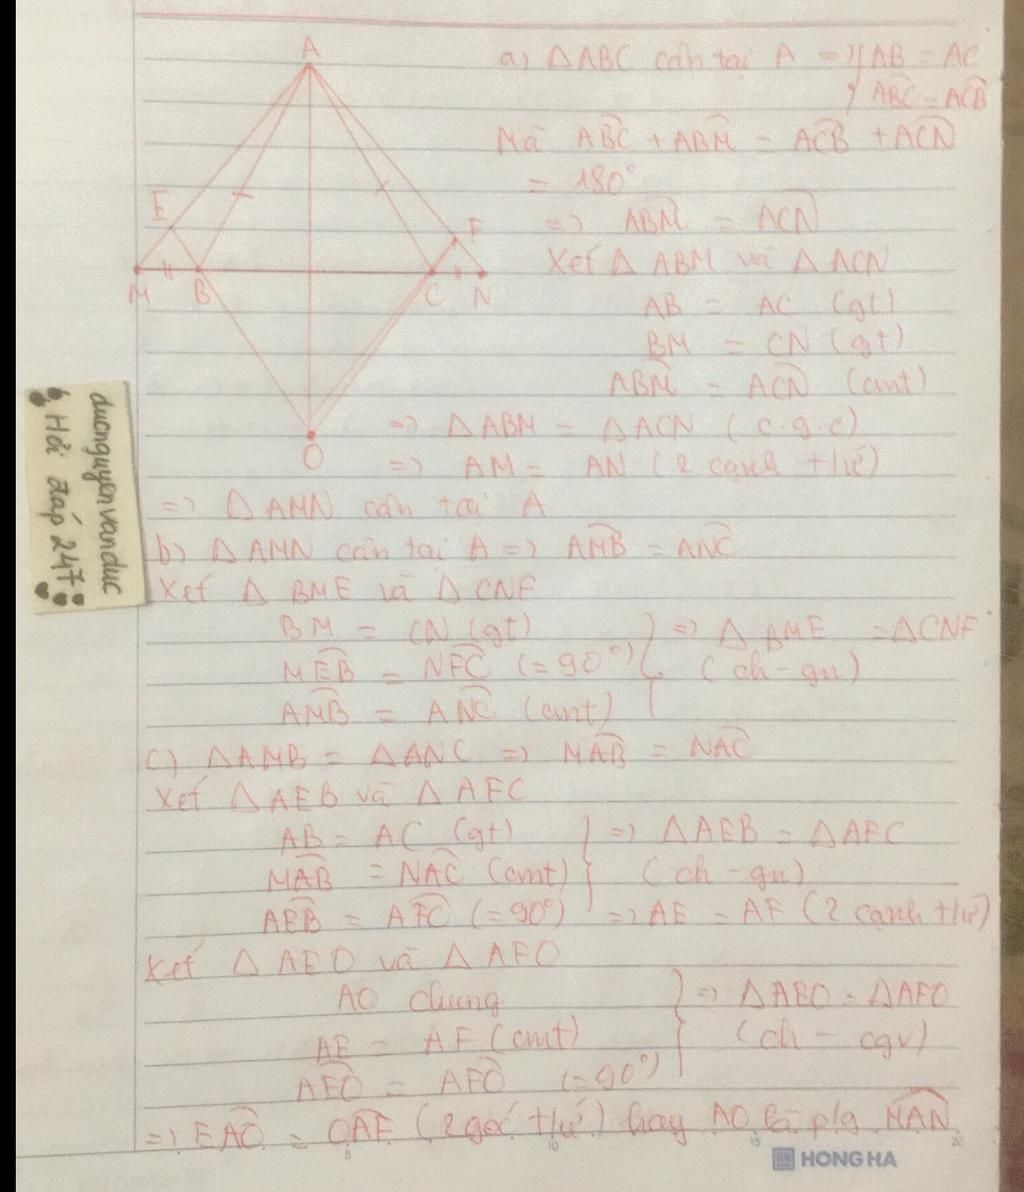 A
E
F
M
B
C
N
O
a) △ABC cân tại A => { AB = AC
{ ABC = ACB
Mà ABC + ABM = ACB + ACN
= 180°
=> ABM = ACN
Xét △ ABM và △ ACN
AB = AC (gt)
BM = CN (gt)
ABM = ACN (cmt)
=> △ABM = △ACN (c.g.c)
=> AM = AN (2 cạnh t/ứ)
=> △AMN cân tại A
b) △AMN cân tại A => AMB = ANC
Xét △ BME và △ CNF
BM = CN (gt)
MEB = NFC (=90°)
AMB = ANC (cmt)
} => △ BME = △CNF
(ch - gn)
c) △AMB = △ANC => MAB = NAC
Xét △AEB và △AFC
AB = AC (gt)
MAB = NAC (cmt)
AEB = AFC (=90°)
} => △AEB = △AFC
(ch - gn)
=> AE = AF (2 cạnh t/ứ)
Xét △AEO và △AFO
AO chung
AE = AF (cmt)
AEO = AFO (=90°)
} => △AEO = △AFO
(ch - cgv)
=> EAO = OAF (2 góc t/ứ) hay AO là p/g MAN
ducnguyenvanduc
Hỏi đáp 247
5 10 15 20
HONG HA